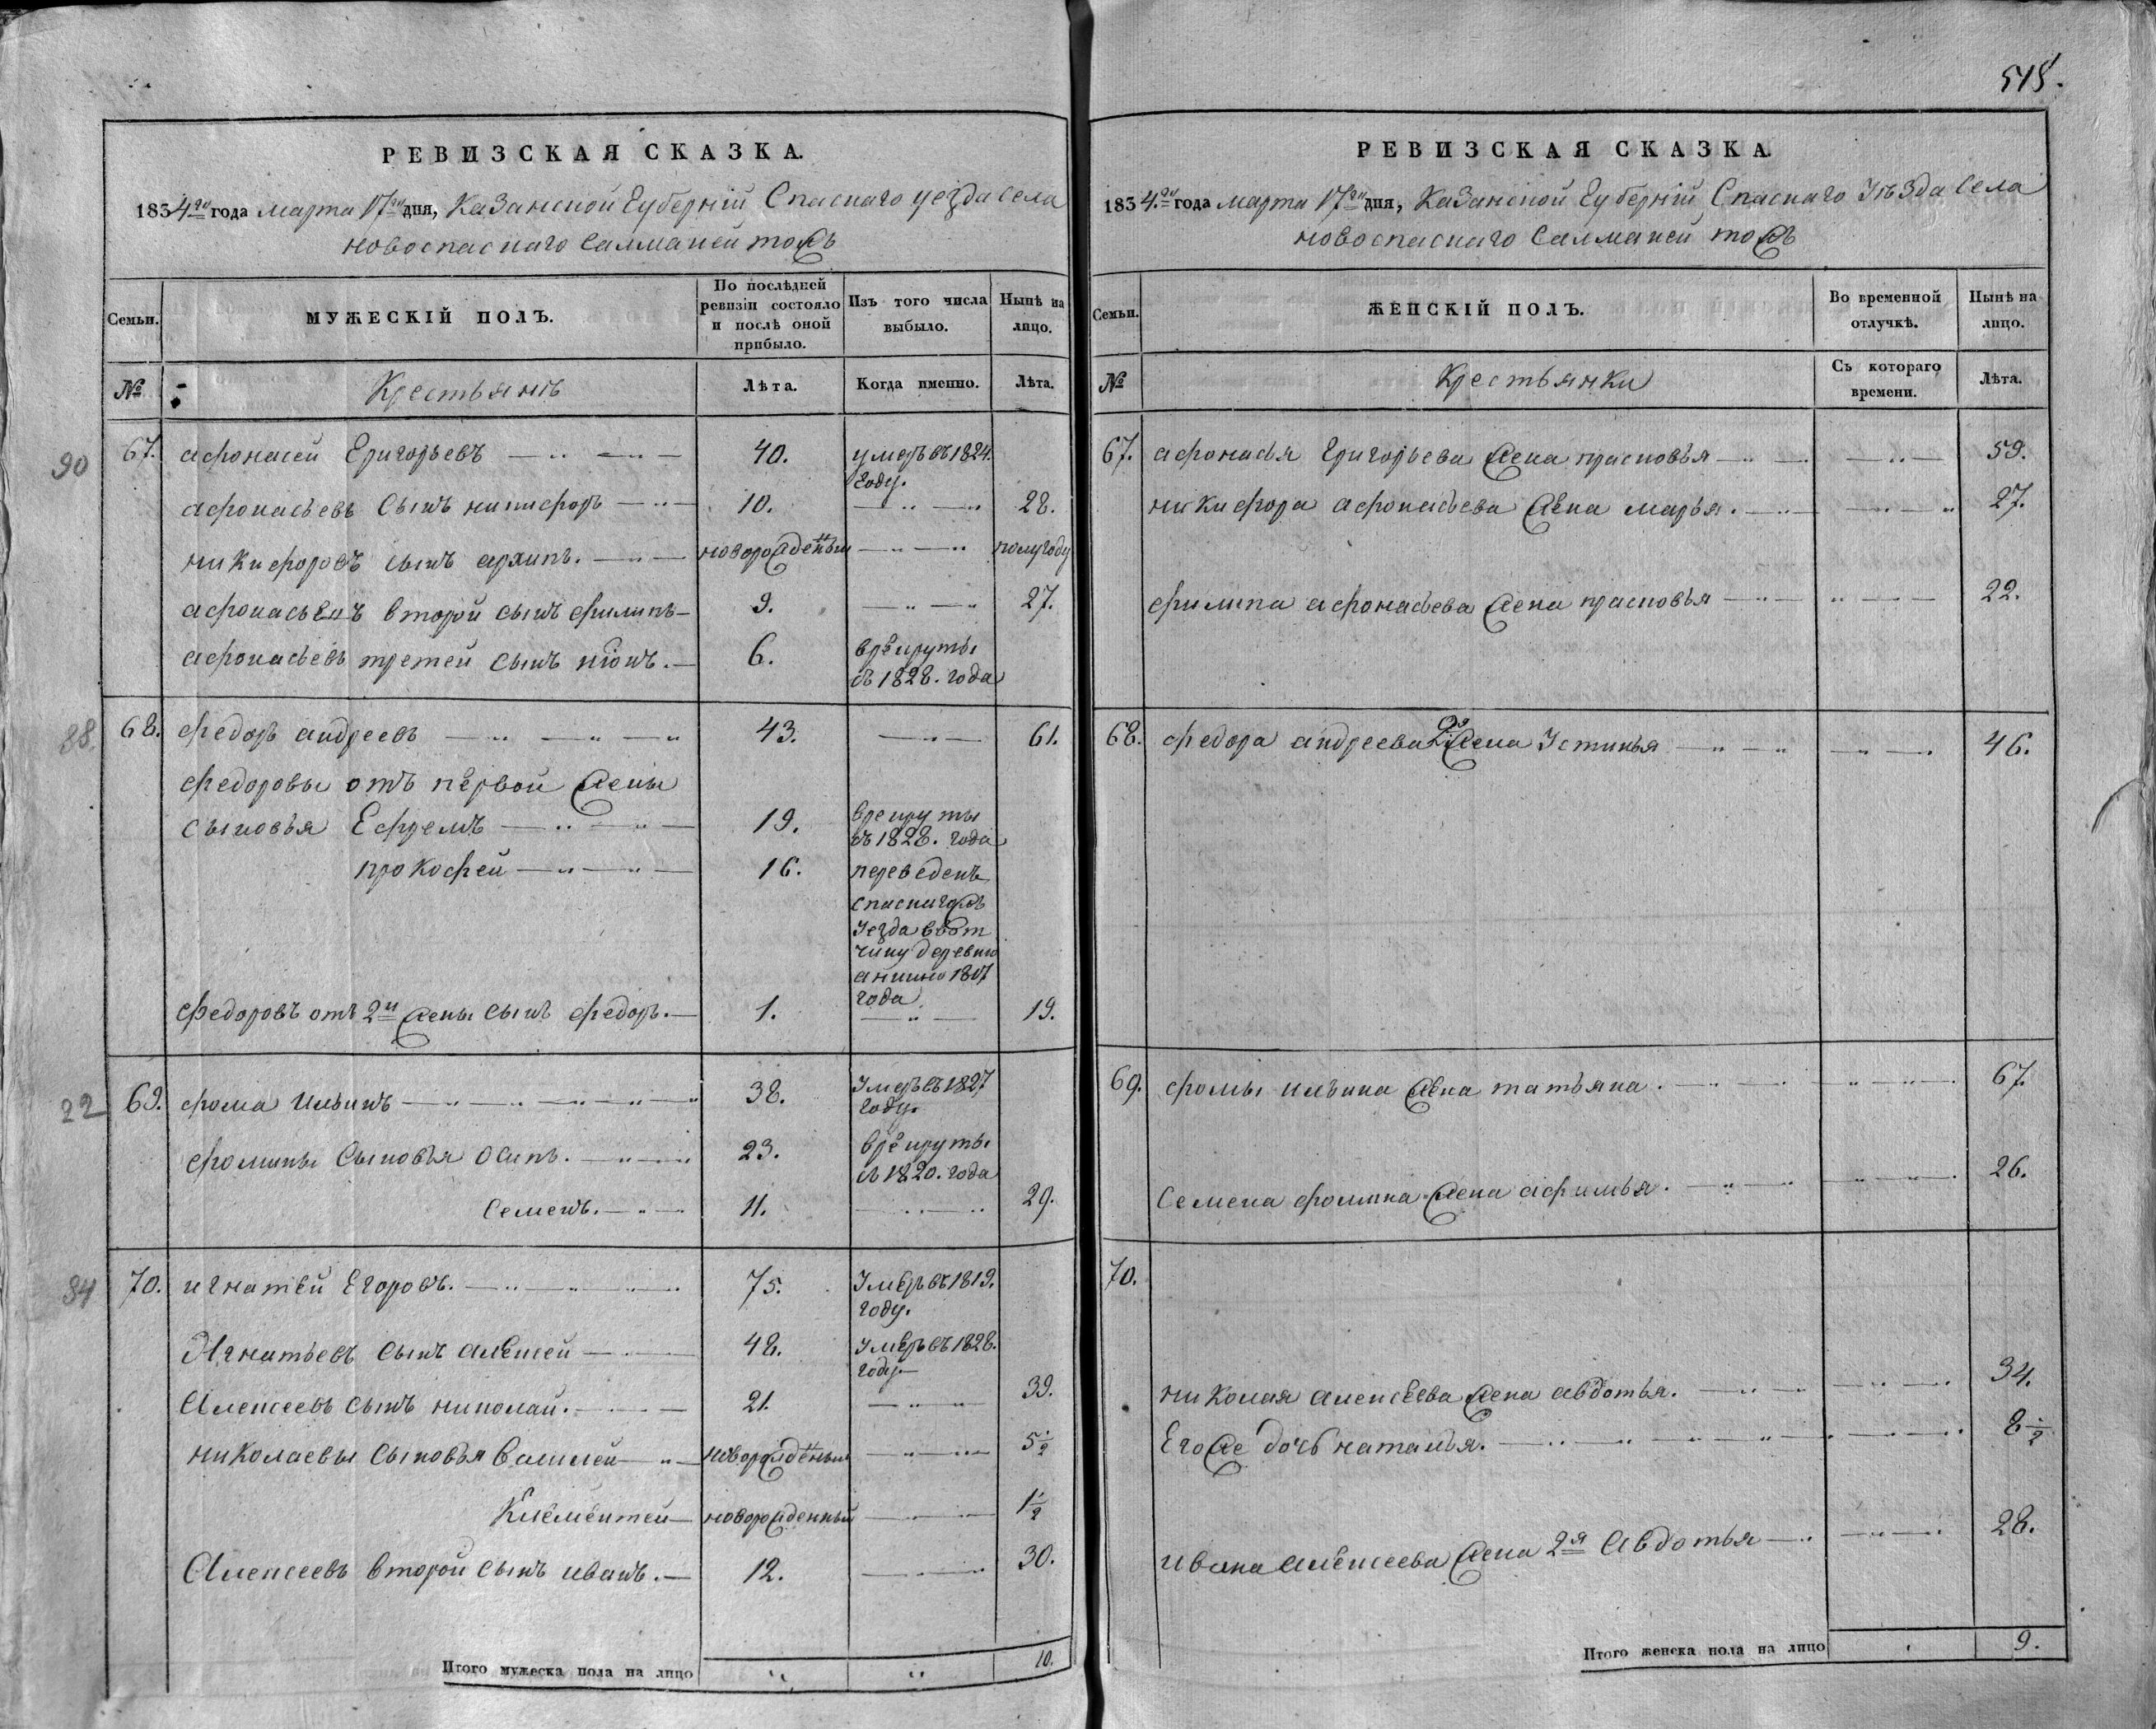 518.
РЕВИЗСКАЯ СКАЗКА.
1834.го года марта 17.го дня, Казанской Губерніи Спаскаго уезда Села
новоспаскаго Салманеи тожъ
Семьи.
МУЖЕСКІЙ ПОЛЪ.
По послѣдней ревизіи состояло и послѣ оной прибыло.
Изъ того числа выбыло.
Нынѣ на лицо.
№
Крестьянъ
Лѣта.
Когда именно.
Лѣта.
90 67. афонасей Григорьевъ 40. умеръ въ 1824. году.
афонасьевъ Сынъ никифоръ 10. 28.
никифоровъ сынъ архипъ. новорожденый полугоду
афонасьевъ второй сынъ филипъ 9. 27.
афонасьевъ третей сынъ 6. врекруты съ 1828. года
88. 68. федоръ андреевъ 43. 61.
федоровы отъ первой жены
сыновья Ефремъ 19. врекруты съ 1828. года
прокофей 16. переведенъ
спаскагожъ
Уезда ввот
чину деревню
1817
года
федоровъ отъ 2й жены сынъ федоръ. 1. 19.
22 69. фома ильинъ 38. Умеръ въ 1827 году.
фомины Сыновья осипъ. 23. врекруты съ 1820. года
Семенъ. 11. 29.
84 70. игнатей Егоровъ. 75. Умеръ въ 1819. году.
Игнатьевъ Сынъ алексей 48. Умеръ въ 1828. году.
Алексеевъ сынъ николай. 21. 39.
николаевы Сыновья Василей новорожденный 5 1/2
Клементей новорожденный 1 1/2
Алексеевъ второй сынъ иванъ. 12. 30.
Итого мужеска пола на лицо 10.
РЕВИЗСКАЯ СКАЗКА.
1834.го года марта 17го дня, Казанской Губерніи Спаскаго Уѣзда Села
новоспаскаго Салманеи тожъ
Семьи.
ЖЕНСКІЙ ПОЛЪ.
Во временной отлучкѣ.
Нынѣ на лицо.
№
Крестьянки
Съ котораго времени.
Лѣта.
67. афонасья Григорьева жена прасковья 59.
никифора афонасьева жена марья. 27.
филипа афонасьева жена прасковья 22.
68. федора андреева 2я жена Устинья 46.
69. фомы ильина жена татьяна. 67.
Семена фомина жена афимья. 26.
70.
николая алексеева жена авдотья. 34.
Егоже дочь наталья. 8 1/2
ивана алексеева жена 2я Авдотья 28.
Итого женска пола на лицо 9.